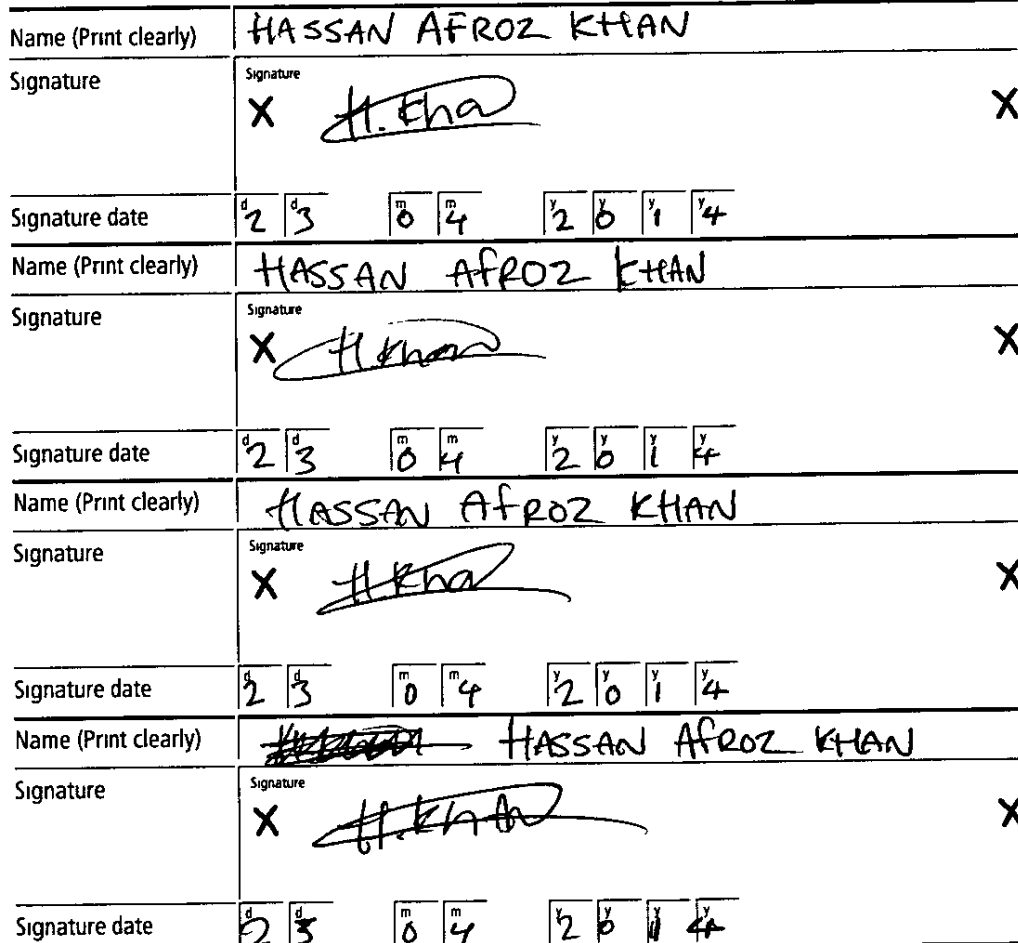 Name (Print clearly) HASSAN AFROZ KHAN
Signature Signature
X H. Kha X
Signature date d2 d3 m0 m4 y2 y0 y1 y4
Name (Print clearly) HASSAN AFROZ KHAN
Signature Signature
X H Khan X
Signature date d2 d3 m0 m4 y2 y0 y1 y4
Name (Print clearly) HASSAN AFROZ KHAN
Signature Signature
X H Kha X
Signature date d2 d3 m0 m4 y2 y0 y1 y4
Name (Print clearly) HASSAN AFROZ KHAN
Signature Signature
X H. Khan X
Signature date d2 d3 m0 m4 y2 y0 y1 y4